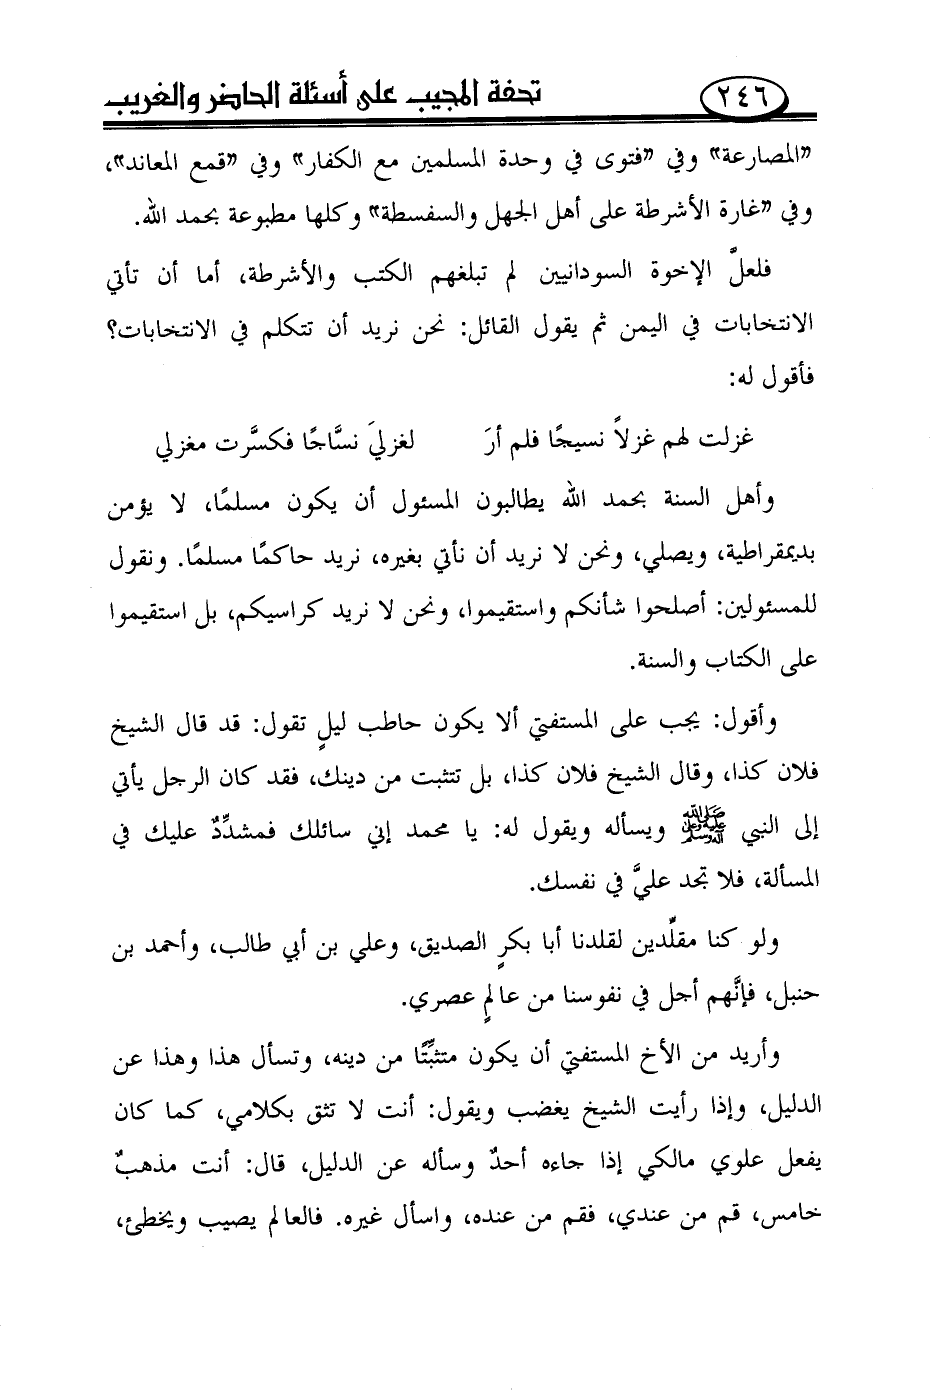 ٢٤٦ تحفة المجيب على أسئلة الحاضر والغريب
«المصارعة» وفي «فتوى في وحدة المسلمين مع الكفار» وفي «قمع المعاند»،
وفي «غارة الأشرطة على أهل الجهل والسفسطة» وكلها مطبوعة بحمد الله.
فلعلَّ الإخوة السودانيين لم تبلغهم الكتب والأشرطة، أما أن تأتي
الانتخابات في اليمن ثم يقول القائل: نحن نريد أن تتكلم في الانتخابات؟
فأقول له:
غزلت لهم غزلاً نسيجًا فلم أرَ لغزليَ نسَّاجًا فكسَّرت مغزلي
وأهل السنة بحمد الله يطالبون المسئول أن يكون مسلمًا، لا يؤمن
بديمقراطية، ويصلي، ونحن لا نريد أن نأتي بغيره، نريد حاكمًا مسلمًا. ونقول
للمسئولين: أصلحوا شأنكم واستقيموا، ونحن لا نريد كراسيكم، بل استقيموا
على الكتاب والسنة.
وأقول: يجب على المستفتي ألا يكون حاطب ليلٍ تقول: قد قال الشيخ
فلان كذا، وقال الشيخ فلان كذا، بل تتثبت من دينك، فقد كان الرجل يأتي
إلى النبي ﷺ ويسأله ويقول له: يا محمد إني سائلك فمشدِّدٌ عليك في
المسألة، فلا تجد عليَّ في نفسك.
ولو كنا مقلِّدين لقلدنا أبا بكرٍ الصديق، وعلي بن أبي طالب، وأحمد بن
حنبل، فإنَّهم أجل في نفوسنا من عالمٍ عصري.
وأريد من الأخ المستفتي أن يكون متثبِّتًا من دينه، وتسأل هذا وهذا عن
الدليل، وإذا رأيت الشيخ يغضب ويقول: أنت لا تثق بكلامي، كما كان
يفعل علوي مالكي إذا جاءه أحدٌ وسأله عن الدليل، قال: أنت مذهبٌ
خامس، قم من عندي، فقم من عنده، واسأل غيره. فالعالم يصيب ويخطئ،